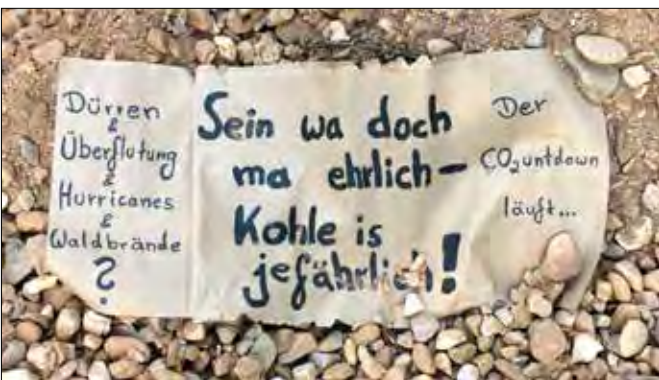 Dürren
&
Überflutung
&
Hurricanes
&
Waldbrände
?
Sein wa doch
ma ehrlich –
Kohle is
jefährlich!
Der
CO₂untdown
läuft...